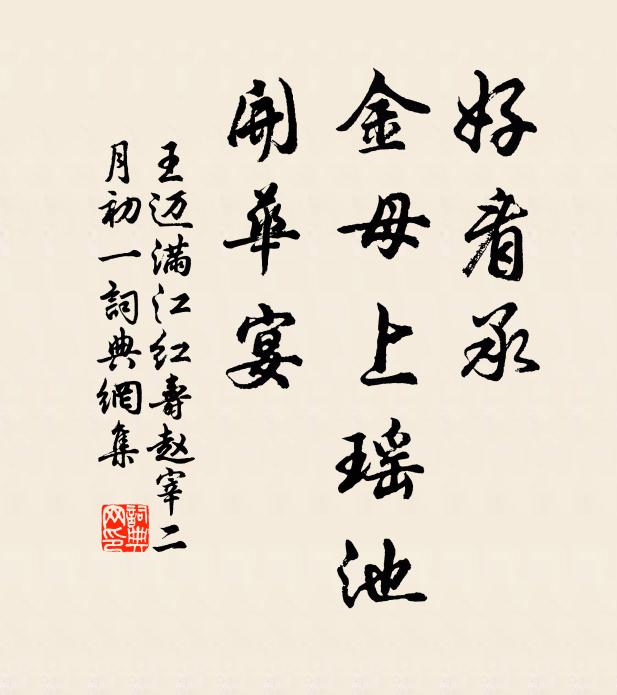 好看承
金母上瑶池
開華宴
王迈满江红寿赵宰二
月初一詞典網集
詞典
网印